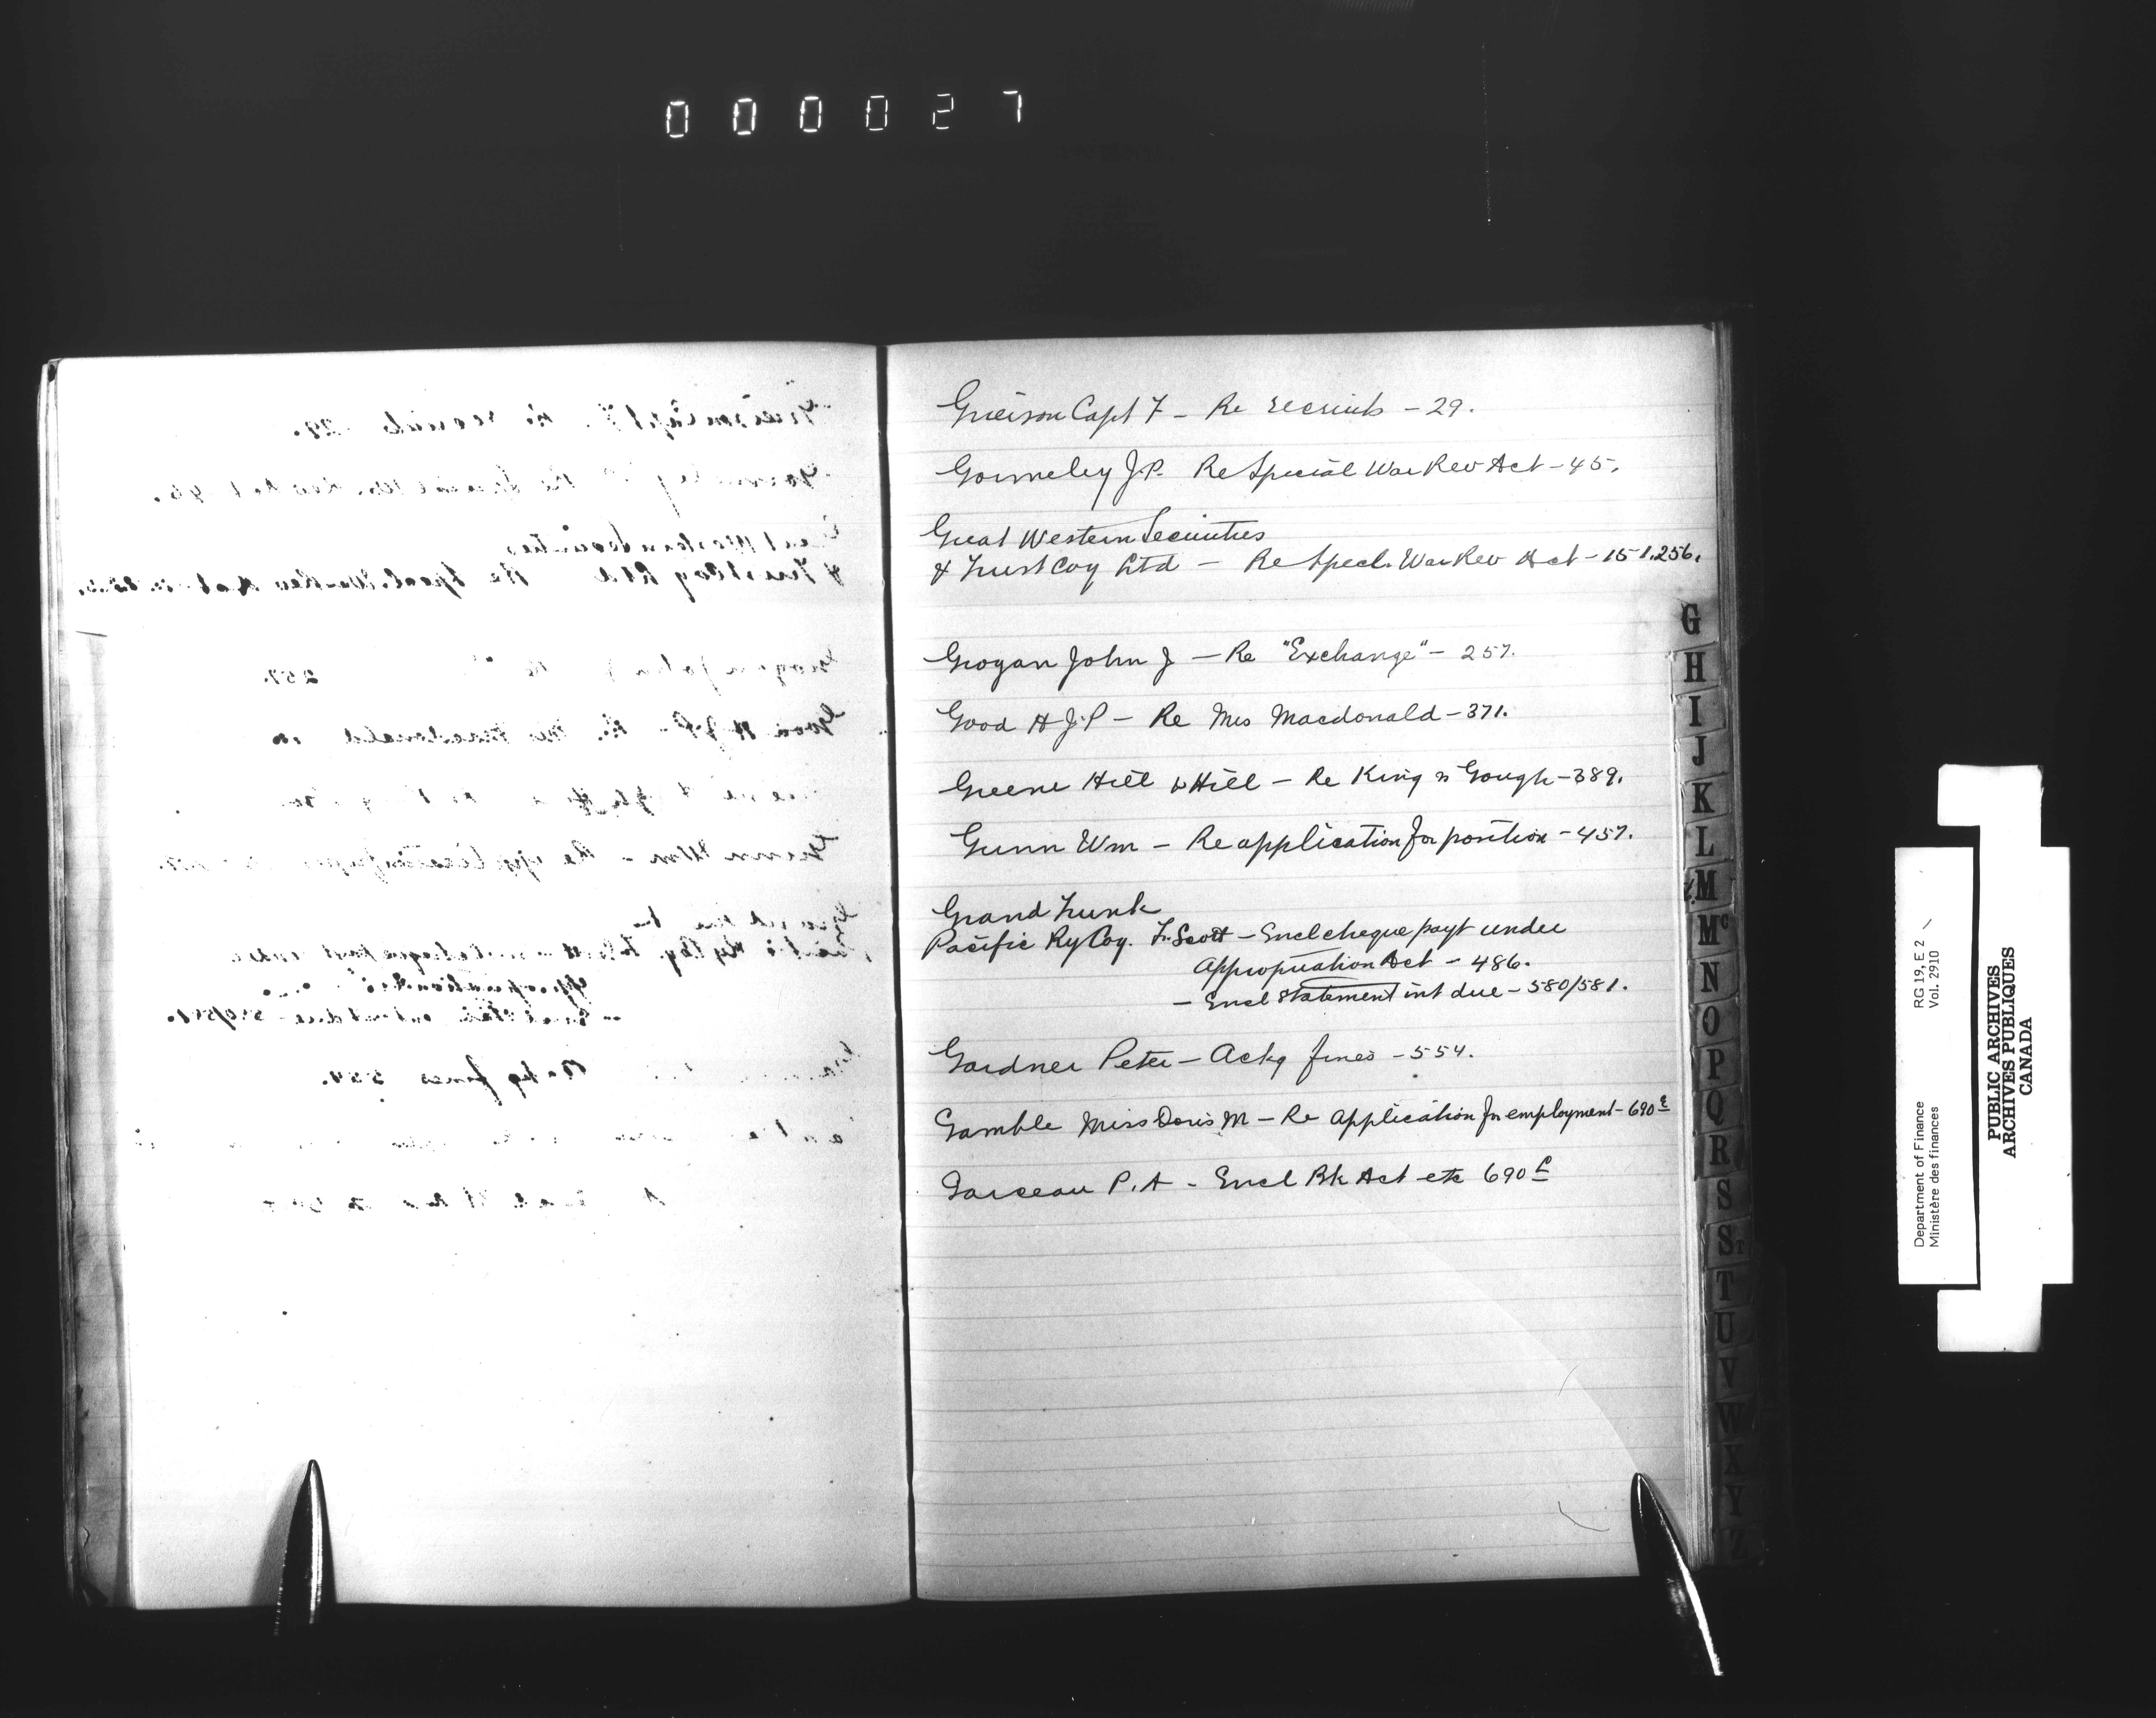 000027
Grierson Capt F - Re recruits - 29.
Gormeley J.P. Re Special War Rev Act - 45.
Great Western Securities
& Trust Coy Ltd - Re Specl. War Rev Act - 151.256.
Grogan John J - Re "Exchange" - 257.
Good H J.P - Re Mrs Macdonald - 371.
Greene Hill & Hill - Re King vs Gough - 389.
Gunn Wm - Re application for position - 457.
Grand Trunk
Pacific Ry Coy. F. Scott - Encl cheque payt under
Appropriation Act - 486.
- Encl statement int due - 580/581.
Gardner Peter - Ackg fines - 554.
Gamble Miss Doris M - Re Application for employment - 690
Garceau P. A - Encl Bk Act etc 690
G
H
I
J
K
L
M
Mc
N
O
P
Q
R
S
ST
T
U
V
W
X
Y
Z
Department of Finance RG 19, E 2
Ministère des finances Vol. 2910
PUBLIC ARCHIVES
ARCHIVES PUBLIQUES
CANADA